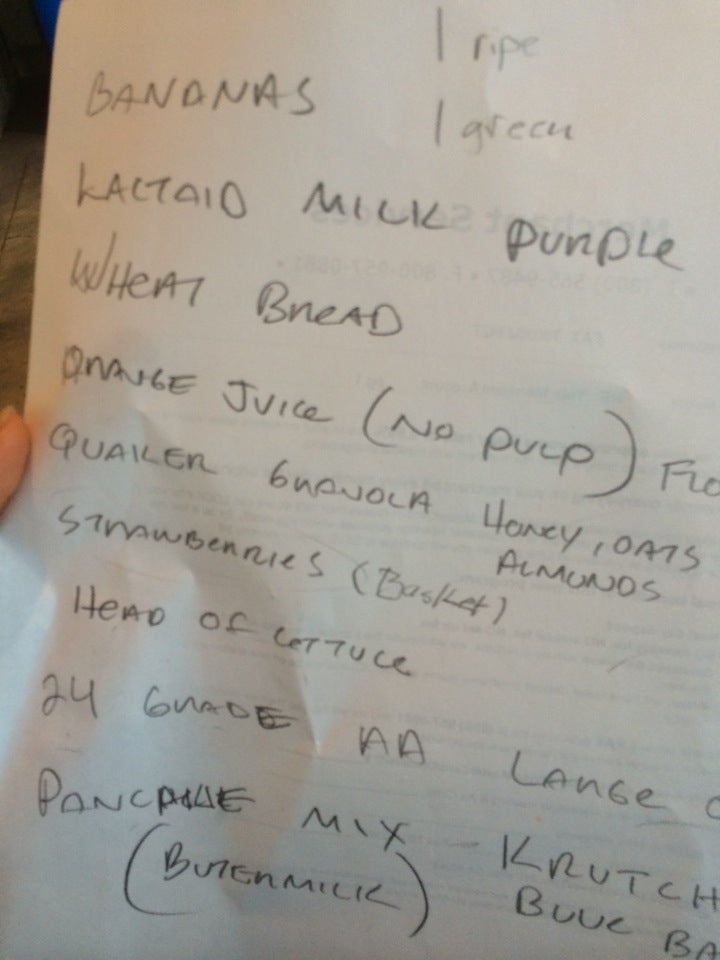 1 ripe
BANANAS
1 green
LACTAID MILK PURPLE
WHEAT BREAD
ORANGE JUICE (NO PULP) FLO
QUAKER GRANOLA HONEY, OATS
ALMONDS
STRAWBERRIES (Basket)
HEAD OF LETTUCE
24 GRADE AA LARGE
PANCAKE MIX - KRUTCH
(BUTERMILK) BUUC BA